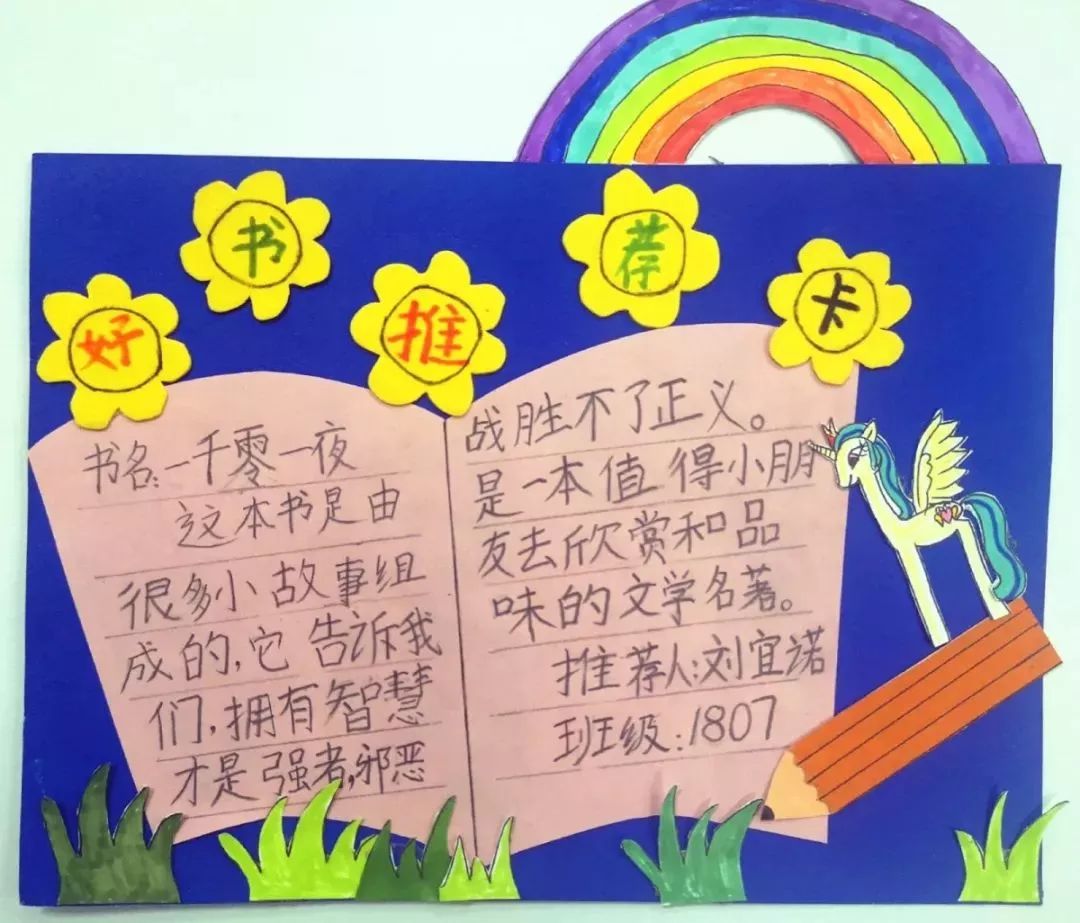 好书推荐卡
书名:一千零一夜
这本书是由
很多小故事组
成的,它告诉我
们,拥有智慧
才是强者,邪恶
战胜不了正义。
是一本值得小朋
友去欣赏和品
味的文学名著。
推荐人:刘宜诺
班级:1807